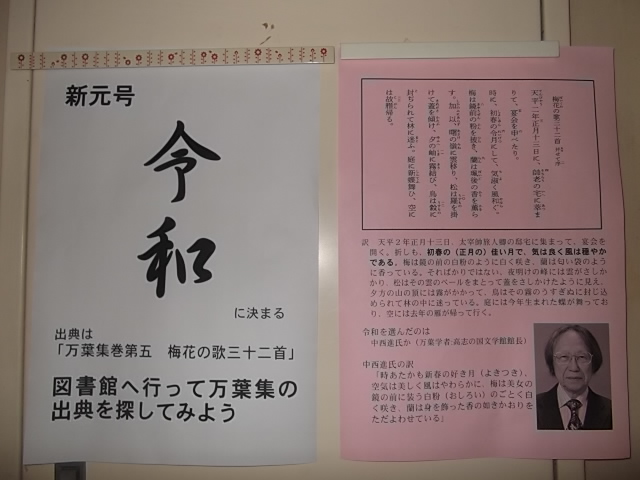 新元号
令
和
に決まる
出典は
「万葉集巻第五 梅花の歌三十二首」
図書館へ行って万葉集の
出典を探してみよう
梅花の歌三十二首 并せて序
天平二年正月十三日に、帥老の宅に萃ま
りて、宴会を申べたり。
時に、初春の令月にして、気淑く風和ぎ、
梅は鏡前の粉を披き、蘭は珮後の香を薫ら
す。加以、曙の嶺に雲移り、松は羅を掛
けて蓋を傾け、夕の岫に霧結び、鳥は縠に
封ぢられて林に迷ふ。庭に新蝶舞ひ、空に
は故雁帰る。
訳 天平2年正月十三日、太宰帥旅人卿の邸宅に集まって、宴会を
開く。折しも、初春の（正月の）佳い月で、気は良く風は穏やか
である。梅は鏡の前の白粉のように白く咲き、蘭は匂い袋のよう
に香っている。そればかりではない、夜明けの峰には雲がさしか
かり、松はその雲のベールをまとって蓋をさしかけたように見え、
夕方の山の頂には霧がかかって、鳥はその霧のうすぎぬに封じ込
められて林の中に迷っている。庭には今年生まれた蝶が舞ってお
り、空には去年の雁が帰って行く。
令和を選んだのは
中西進氏か（万葉学者:高志の国文学館館長）
中西進氏の訳
「時あたかも新春の好き月（よきつき）、
空気は美しく風はやわらかに、梅は美女の
鏡の前に装う白粉（おしろい）のごとく白
く咲き、蘭は身を飾った香の如きかおりを
ただよわせている」